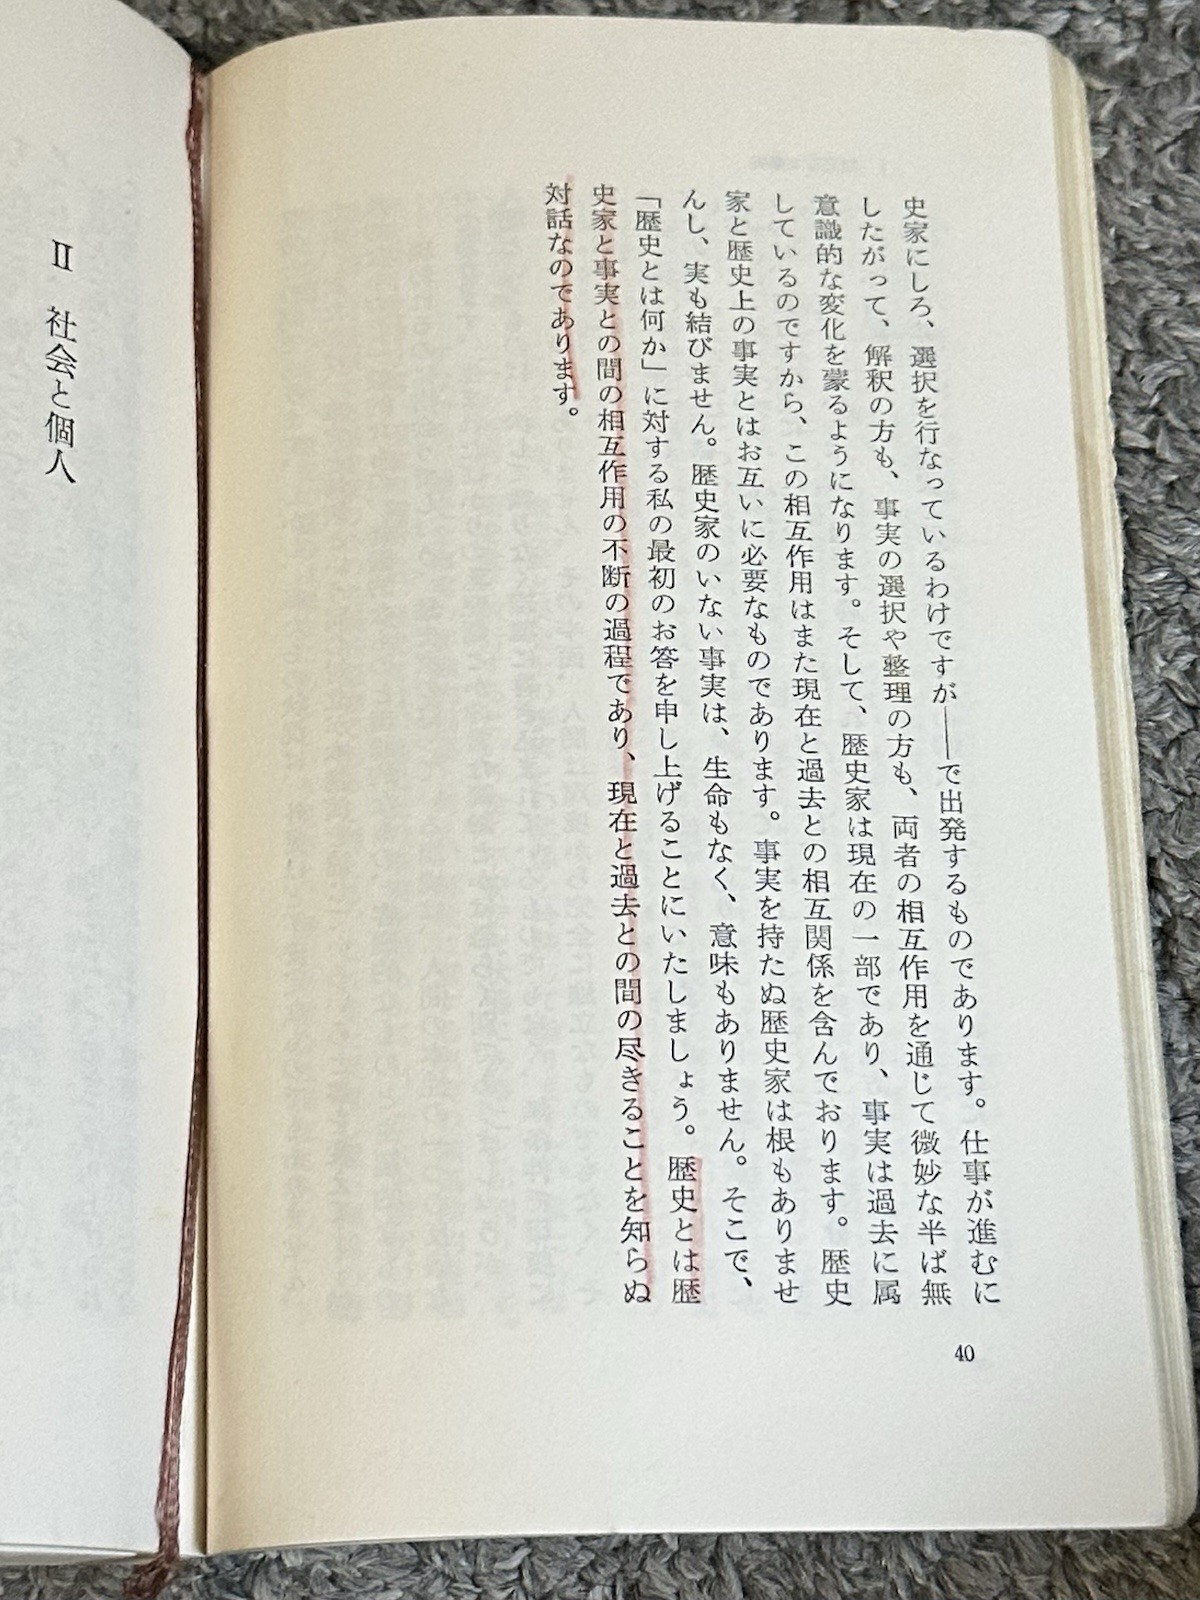 史家にしろ、選択を行なっているわけですが――で出発するものであります。仕事が進むに
したがって、解釈の方も、事実の選択や整理の方も、両者の相互作用を通じて微妙な半ば無
意識的な変化を蒙るようになります。そして、歴史家は現在の一部であり、事実は過去に属
しているのですから、この相互作用はまた現在と過去との相互関係を含んでおります。歴史
家と歴史上の事実とはお互いに必要なものであります。事実を持たぬ歴史家は根もありませ
んし、実も結びません。歴史家のいない事実は、生命もなく、意味もありません。そこで、
「歴史とは何か」に対する私の最初のお答を申し上げることにいたしましょう。歴史とは歴
史家と事実との間の相互作用の不断の過程であり、現在と過去との間の尽きることを知らぬ
対話なのであります。
40
II 社会と個人